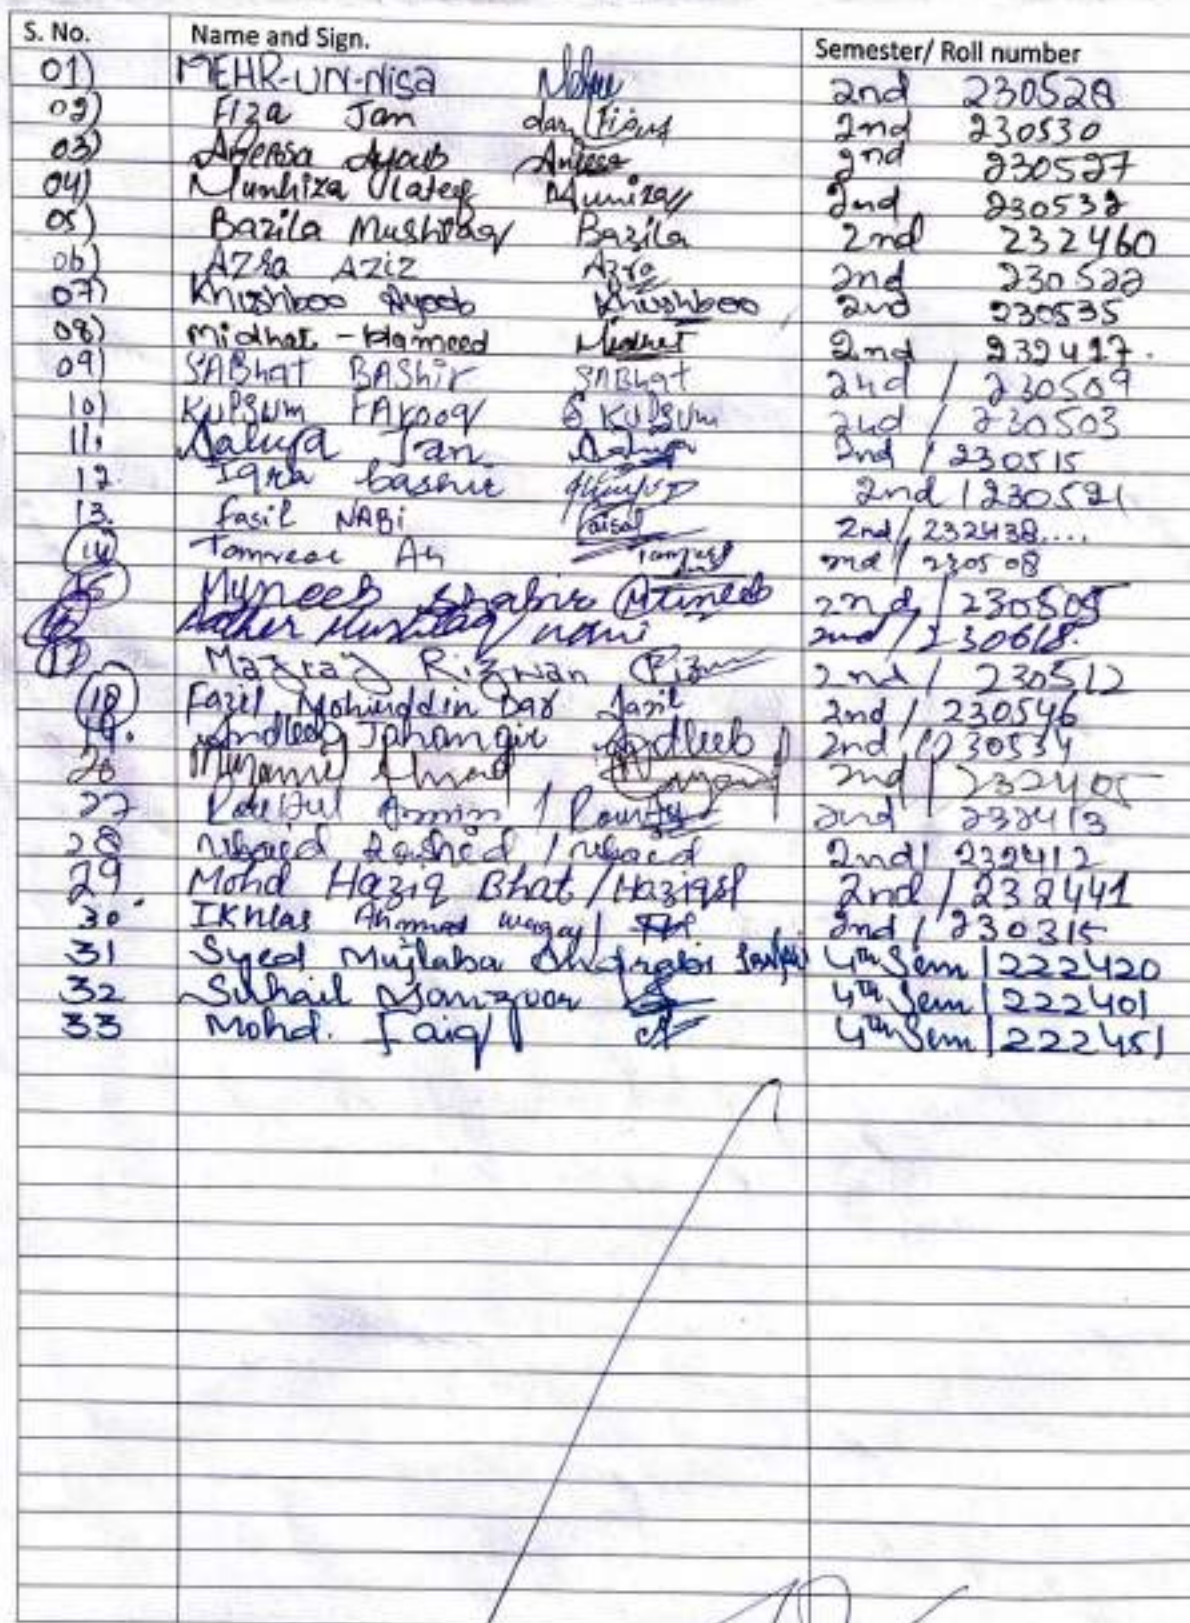 S. No. Name and Sign. Semester/ Roll number
01) MEHR-UN-NISA 2nd 230528
02) FIZA Jan 2nd 230530
03) Ayoub 2nd 230527
04) 2nd 230532
05) Bazila Mushtaq Bazila 2nd 232460
06) AZRA AZIZ Azra 2nd 230522
07) Khushboo Ayoob Khushboo 2nd 230535
08) Midhat - Hameed Midhat 2nd 232417.
09) SABhat BAShir SABhat 2nd / 230509
10) KULSUM FAROOQ KULSUM 2nd / 230503
11. Jan 2nd / 230515
12. Iqra bashir 2nd / 230521
13. fasil NABi Faisal 2nd / 232438....
14 2nd / 230508
15 Muneeb Shabir Muneeb 2nd / 230505
16 Mushtaq wani 2nd / 230618.
17 Rizwan 2nd / 230512
18 Fazil Mohiuddin Dar Fazil 2nd / 230546
19. Andleeb Jahangir Andleeb 2nd / 230534
20 2nd / 232405
27 Amin / 2nd 232413
28 Rashid / 2nd / 232412
29 Mohd Haziq Bhat / Haziq 2nd / 232441
30. IKhlas Ahmad 2nd / 230315
31 Syed Mujtaba Andrabi 4th Sem / 222420
32 Suhail Manzoor 4th Sem / 222401
33 Mohd. Faiq 4th Sem / 222451